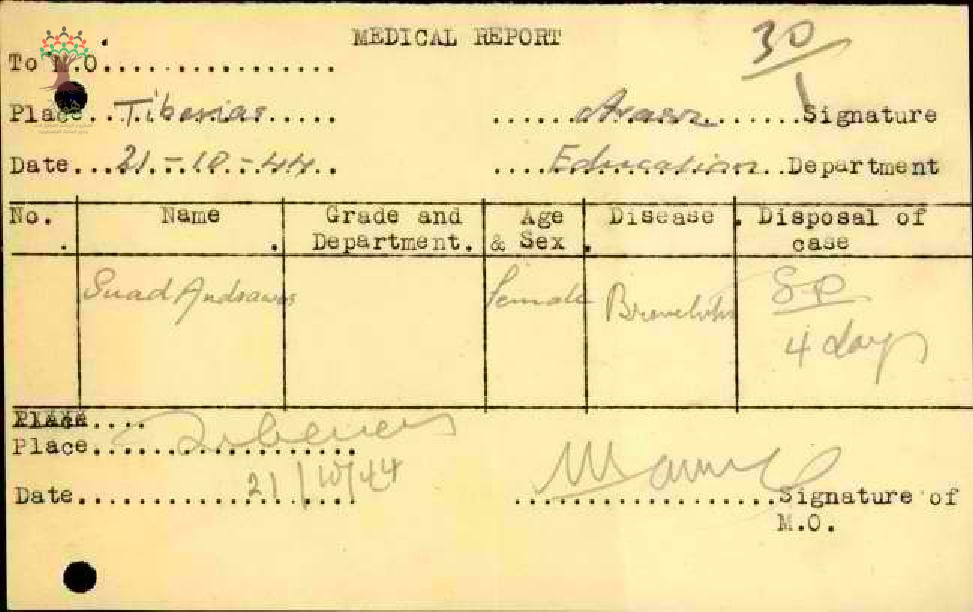 MEDICAL REPORT
30
1
To M.O.................
Place...Tiberias...... ..................Signature
Date...21.-10.-44.. ....Education..Department
No. Name Grade and Department. Age & Sex. Disease. Disposal of case
Suad Andrawos Female Bronchitis SP
4 days
Place....
Place..Tiberias
Date..21/10/44 ....................Signature of
M.O.